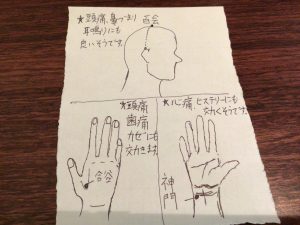 ★頭痛、鼻づまり
耳鳴りにも
良いそうです。
百会
★頭痛
歯痛
カゼにも
効きます。
合谷
★心痛、ヒステリーにも
効くそうです。
神門